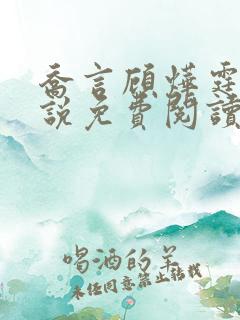 喬言顧燁霆
說免費閱讀
喝酒的羊
未經同意禁止轉載